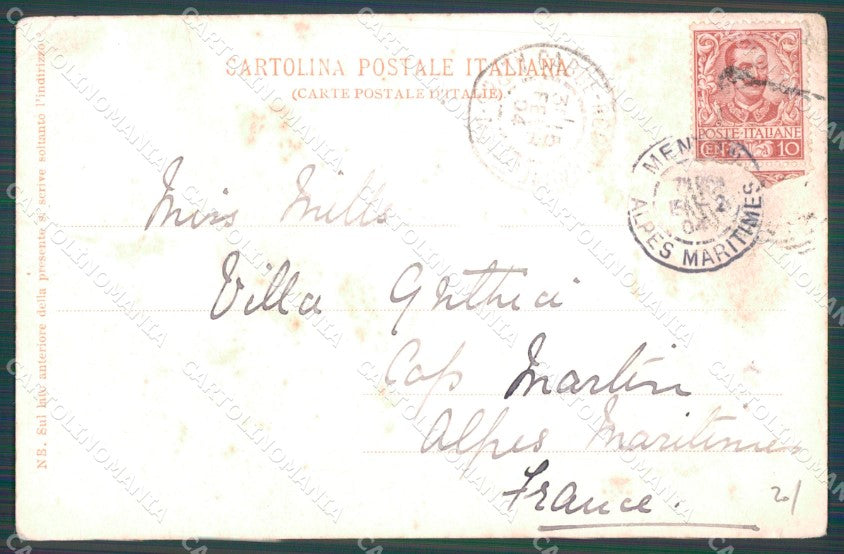 CARTOLINA POSTALE ITALIANA
(CARTE POSTALE D'ITALIE)
NB. Sul lato anteriore della presente si scrive soltanto l'indirizzo
POSTE·ITALIANE
CENT. 10
ALPES MARITIMES
Miss Mills
Villa
Cap Martin
Alpes Maritimes
France.
CARTOLINOMANIA